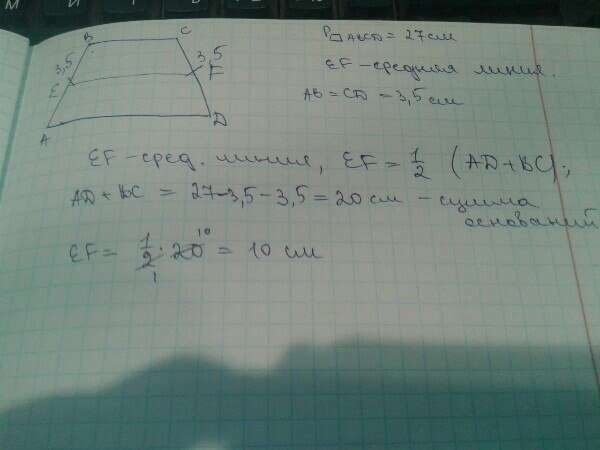 B
C
3,5
3,5
E
F
A
D
P□ABCD = 27 см
EF - средняя линия.
AB = CD = 3,5 см
EF - сред. линия, EF = 1/2 (AD + BC);
AD + BC = 27 - 3,5 - 3,5 = 20 см - сумма
оснований
EF = 1/2 · 20 = 10 см
10
1